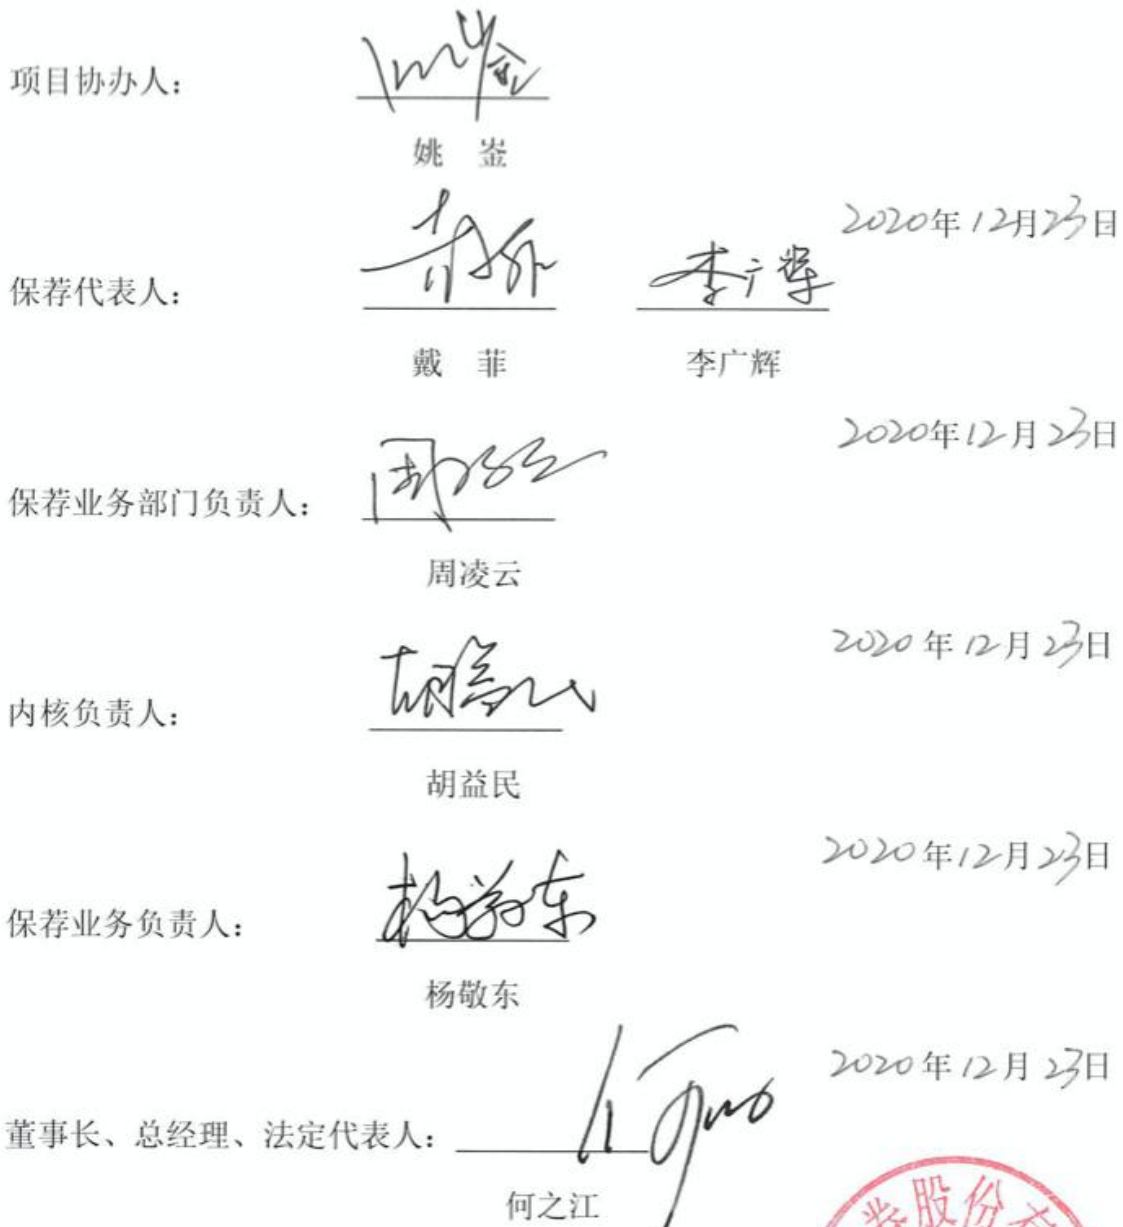 项目协办人：
姚崟
姚 崟
2020年12月23日
保荐代表人：
戴菲 李广辉
戴 菲 李广辉
2020年12月23日
保荐业务部门负责人：
周凌云
周凌云
2020年12月23日
内核负责人：
胡益民
胡益民
2020年12月23日
保荐业务负责人：
杨敬东
杨敬东
2020年12月23日
董事长、总经理、法定代表人：
何之江
何之江
券股份有